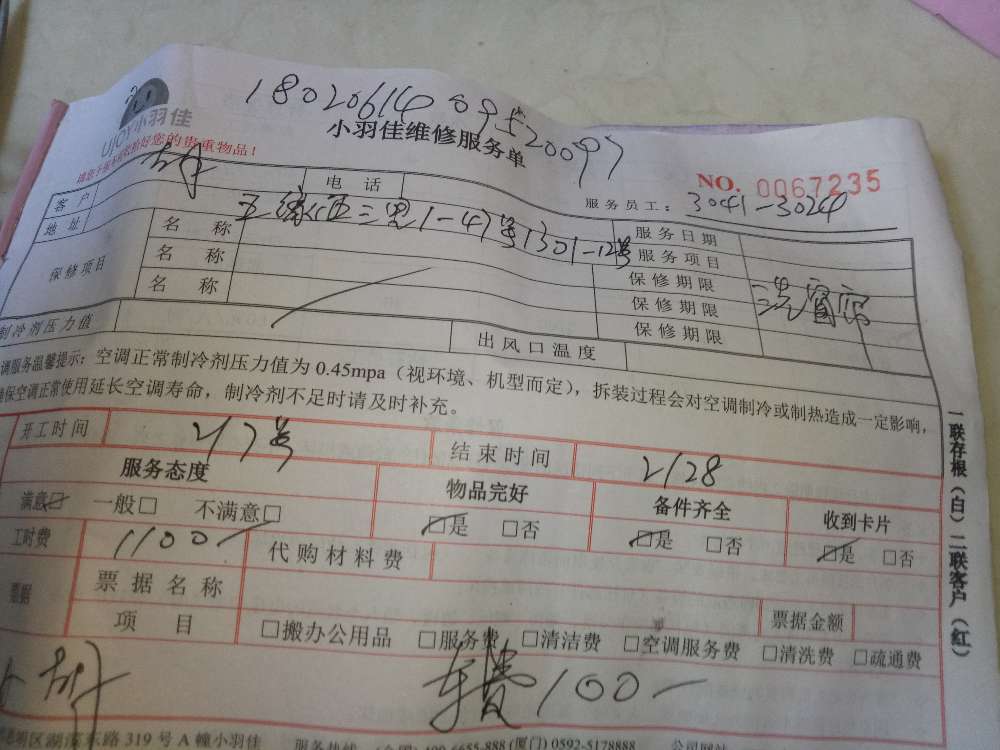 18020614095 20097
UJOY小羽佳
小羽佳维修服务单
请您于服务前收拾好您的贵重物品！
NO. 0067235
服务员工：3041-3024
客户
电话
地址
服务日期
保修项目
名称
服务项目
名称
保修期限
洗窗帘
名称
保修期限
保修期限
制冷剂压力值
出风口温度
调服务温馨提示：空调正常制冷剂压力值为 0.45mpa（视环境、机型而定），拆装过程会对空调制冷或制热造成一定影响，
确保空调正常使用延长空调寿命，制冷剂不足时请及时补充。
开工时间
结束时间 2/28
服务态度 物品完好 备件齐全 收到卡片
满意☑ 一般□ 不满意□ ☑是 □否 ☑是 □否 ☑是 □否
工时费 1100- 代购材料费
票据
票据名称
票据金额
项目 □搬办公用品 □服务费 □清洁费 □空调服务费 □清洗费 □疏通费
车费100-
一联存根（白）二联客户（红）
明区湖滨东路 319 号 A 幢小羽佳